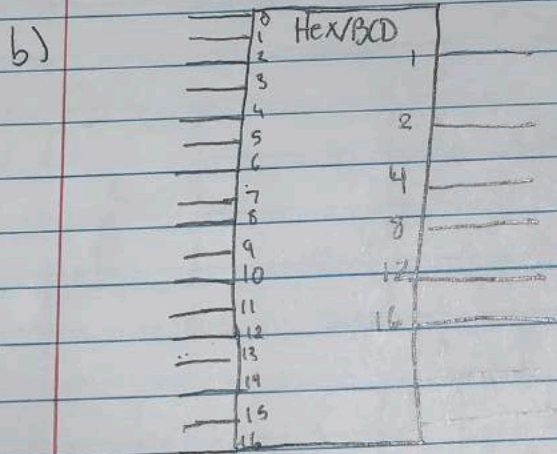 b)
Hex/BCD
0
1
2
3
4
5
6
7
8
9
10
11
12
13
14
15
16
1
2
4
8
12
16